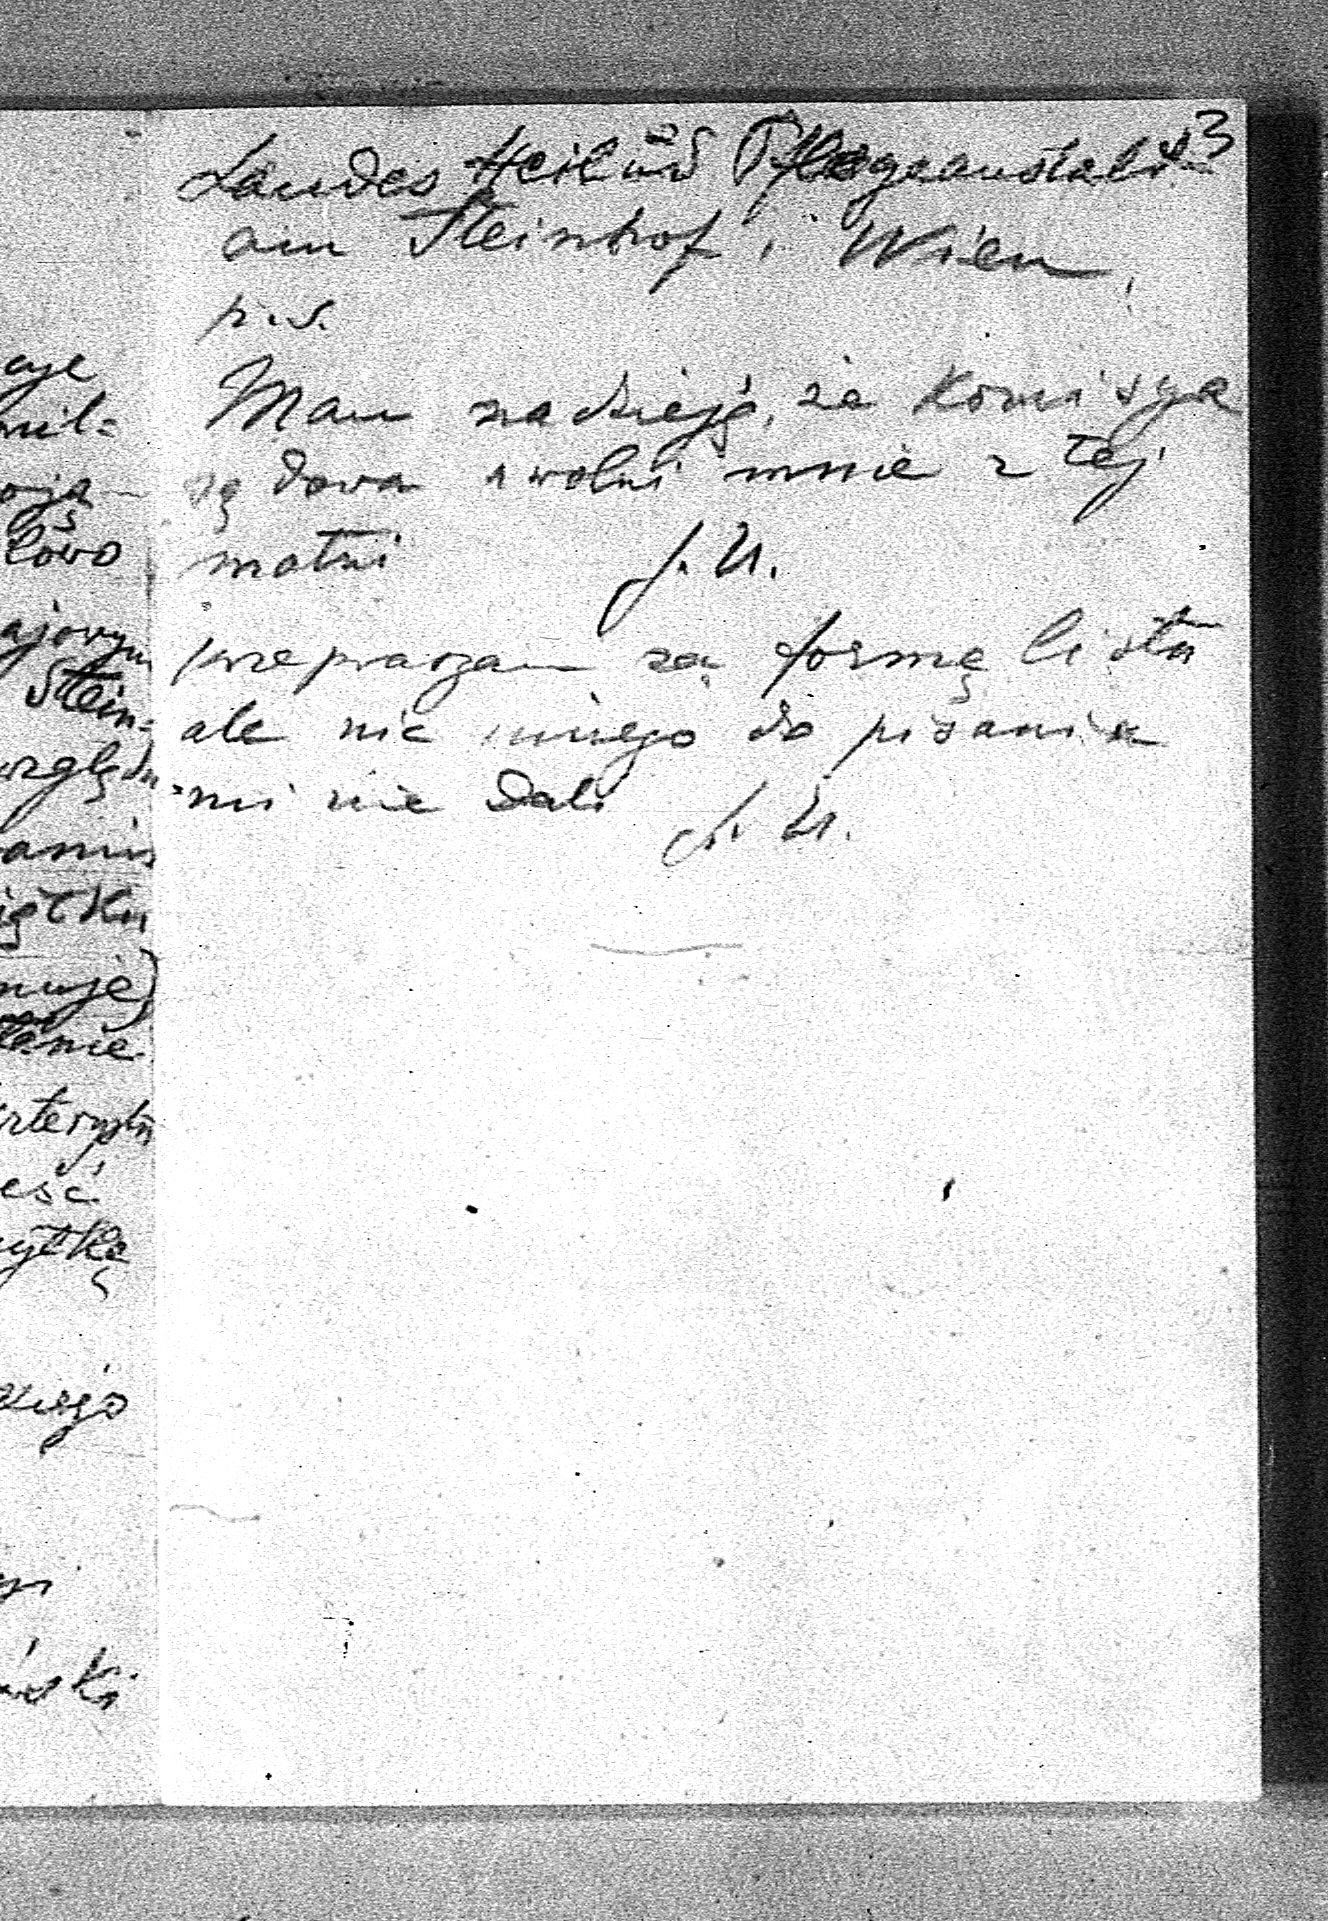 43
Landes Heil und Pflegeanstalt
am Steinhof, Wien,
p.s.
Mam nadzieję, że komisya
sądowa uwolni mnie z tej
matni J. U.
przepraszam za formę listu
ale nic innego do pisania
mi nie dali J. U.
uje
mil-
oją
łowo
ajowym
Stein-
względu
iątku
muje)
eść
kiego
ński